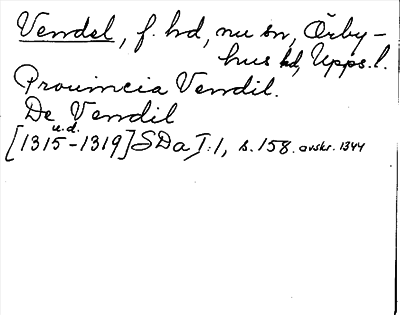 Vendel, f. hd, nu sn, Örby-
hus hd, Upps. l.
Provincia Vendil.
De Vendil
u.d.
[1315-1319] SDa I:1, s. 158. avskr. 1344